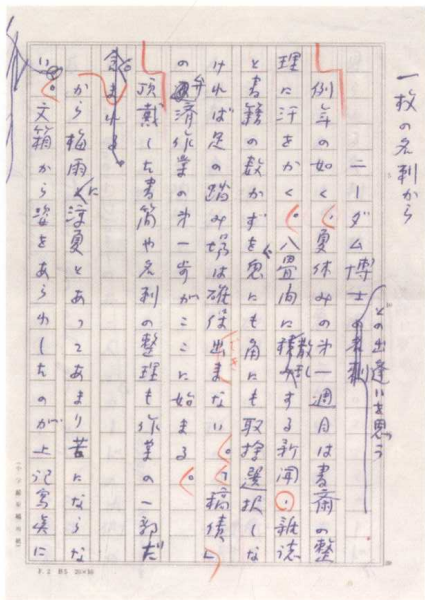 一枚の名刺から
ニーダム博士との出逢いを思う
例年の如く、夏休みの第一週目は書斎の整
理に汗をかく。八畳間に散乱する新聞・雑誌
と書籍の数かずを兎にも角にも取捨選択しな
ければ足の踏み場は確保出来ない。「稿債」
の弁済作業の第一歩がここに始まる。
頂戴した書簡や名刺の整理も作業の一部だ
から梅雨に淳夏とあってあまり苦にならな
い。文箱から姿をあらわしたのが上記寫真に
F.2 B5 20×10